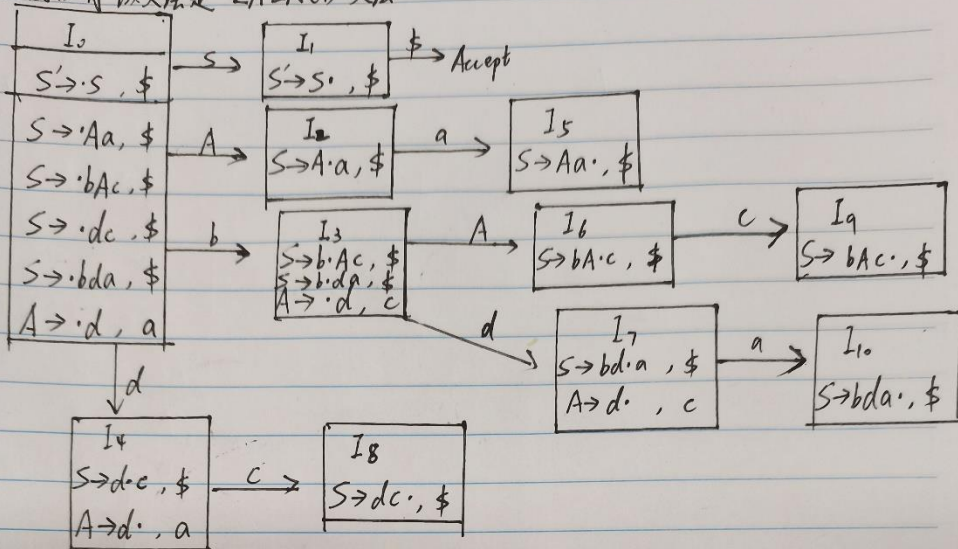 该文法是 LALR(1) 文法
I₀
S'→·S , $
S→·Aa, $
S→·bAc, $
S→·dc, $
S→·bda, $
A→·d, a
S
I₁
S'→S· , $
$
Accept
A
I₂
S→A·a, $
a
I₅
S→Aa·, $
b
I₃
S→b·Ac, $
S→b·da, $
A→·d, c
A
I₆
S→bA·c, $
c
I₉
S→bAc·, $
d
I₇
S→bd·a , $
A→d· , c
a
I₁₀
S→bda·, $
d
I₄
S→d·c, $
A→d·, a
c
I₈
S→dc·, $